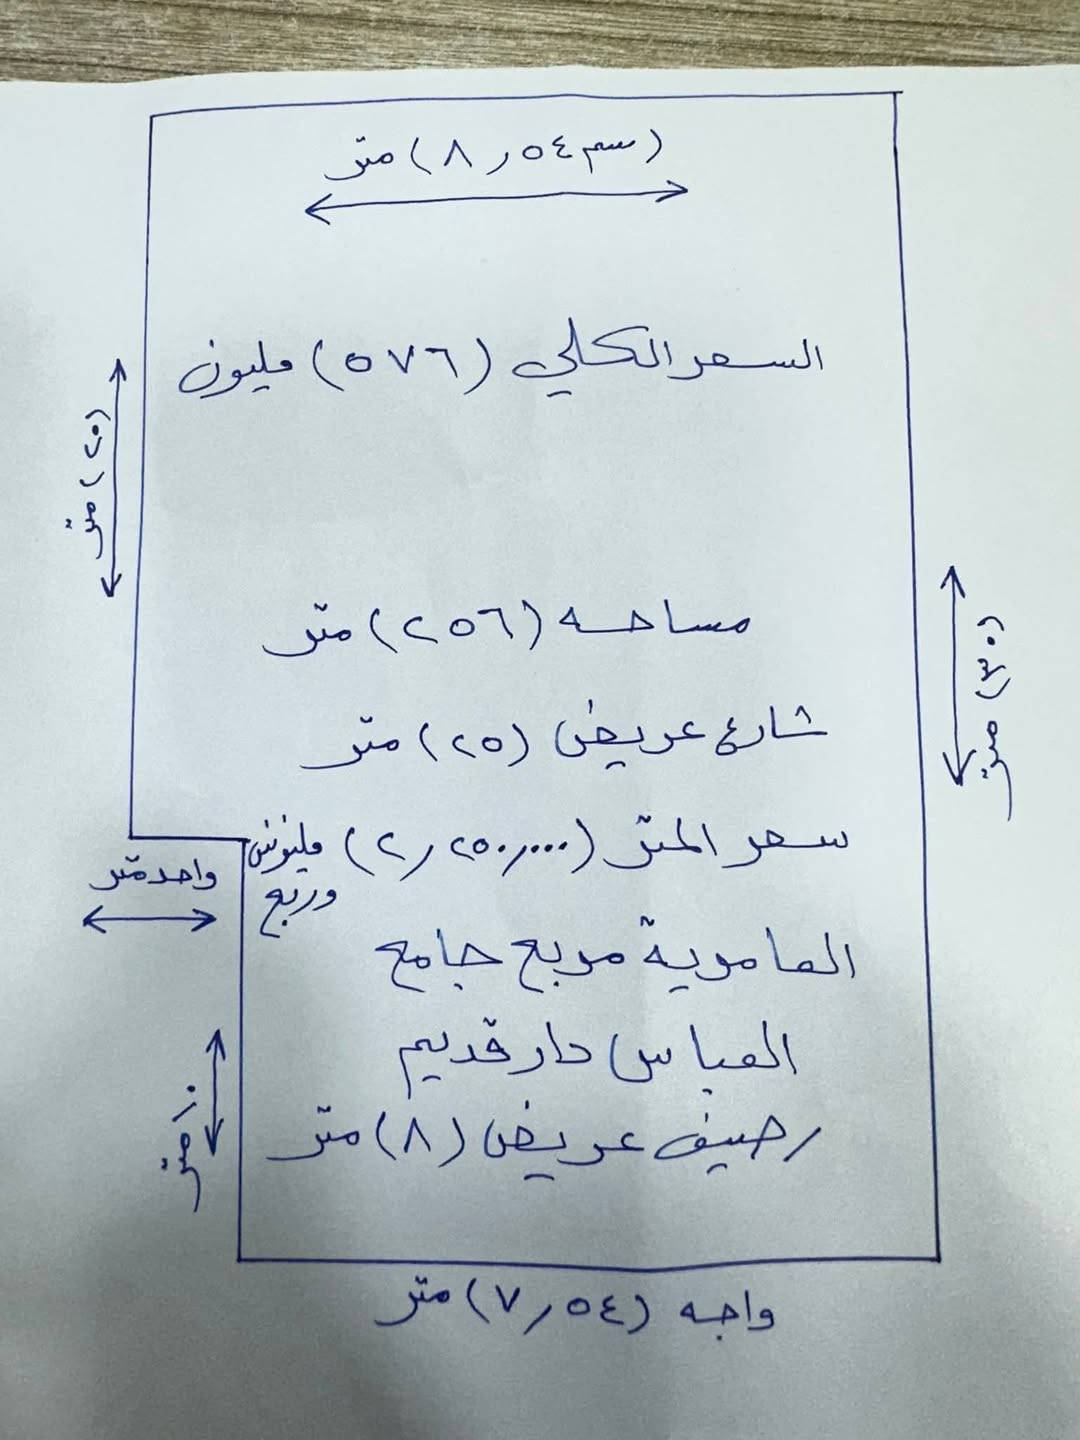 (سم ٨,٥٤) متر
السعر الكلي (٥٧٦) مليون
(٢٠) متر
مساحه (٢٥٦) متر
(٣٠) متر
شارع عريض (٢٥) متر
سعر المتر (٢,٢٥٠,٠٠٠) مليونين
وربع
واحد متر
العامرية مربع جامع
العباس دار قديم
١٠ متر
رصيف عريض (٨) متر
واجه (٧,٥٤) متر